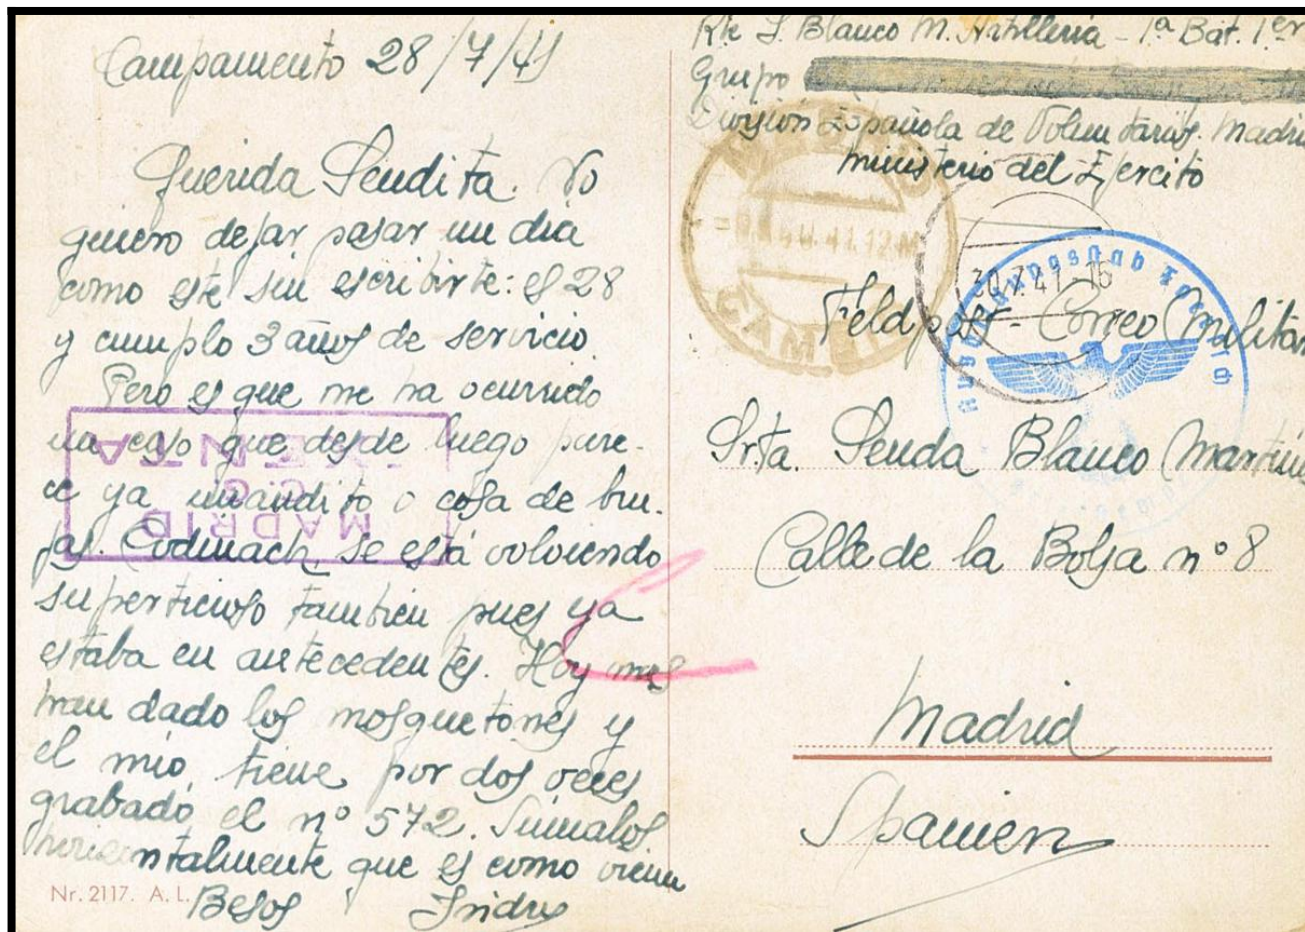 Campamento 28/7/41
Querida Sendita. No
quiero dejar pasar un dia
como este sin escribirte: es 28
y cumplo 3 años de servicio.
Pero es que me ha ocurrido
un caso que desde luego pare-
ce ya inaudito o cosa de bru-
jas. Codinach, se está volviendo
supersticioso tambien pues ya
estaba en antecedentes. Hoy nos
han dado los mosquetones y
el mio, tiene por dos veces
grabado el nº 572. Sumalos
horizontalmente que es como viene
Besos Isidro
Nr. 2117. A. L.
Rte I. Blanco M. Artilleria - 1ª Bat. 1er
Grupo
Division Española de Voluntarios. Madrid
Ministerio del Ejercito
Feldpost - Correo Militar
Srta. Senda Blanco Martin
Calle de la Bolsa nº 8
Madrid
Spanien
30.7.41-16
MADRID
C.G.